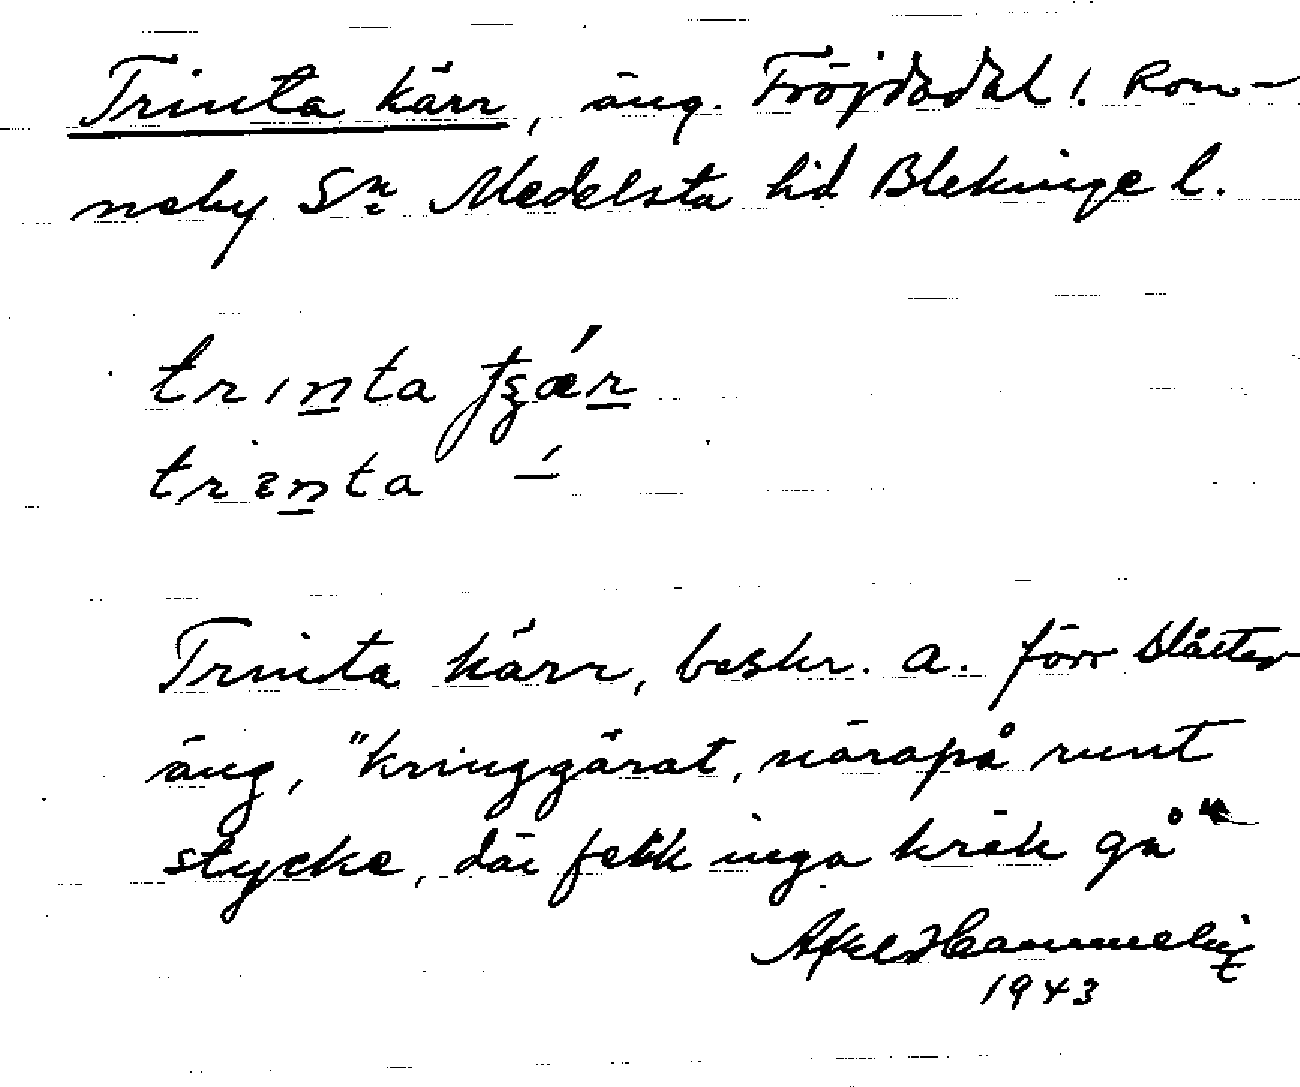 Trinta kärr, äng. Fröjdadal i. Ron-
neby Sn Medelsta hd Blekinge l.
trinta fʒǽr
trinta –́
Trinta kärr, beskr. a. förr slåtter
äng, "kringgärat, närapå runt
stycke, där fekk inga kräk gå"
Axel
1943